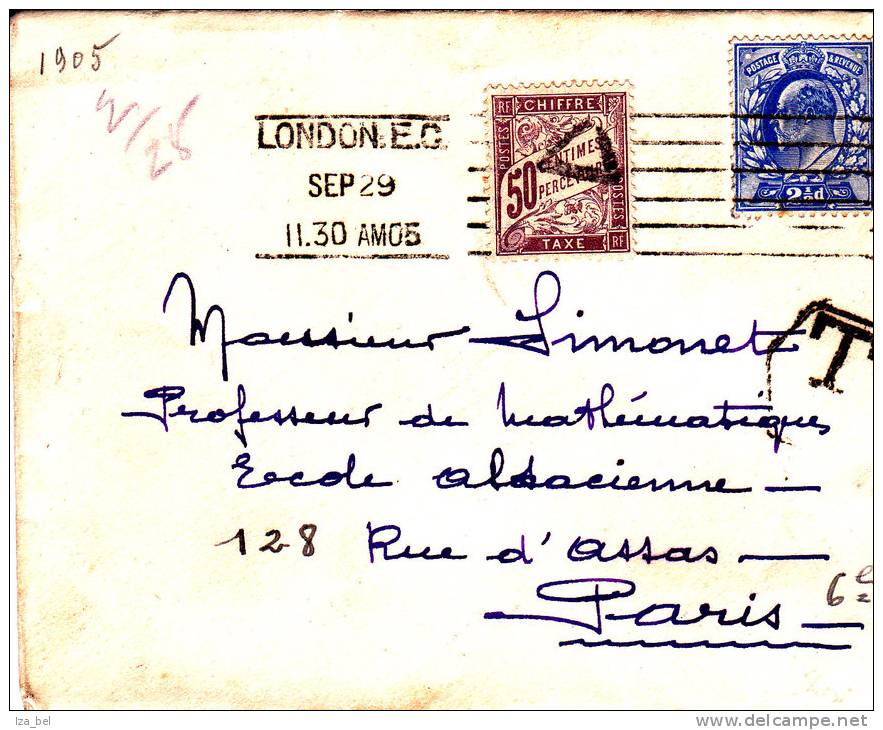 1905
LONDON. E.C.
SEP 29
11.30 AM 05
RF CHIFFRE RF
POSTES
50 CENTIMES
PERCEVOIR
POSTES
TAXE RF
POSTAGE & REVENUE
2½d
T
Monsieur Simonet
Professeur de Mathématiques
Ecole alsacienne —
128 Rue d'Assas —
6e
Paris —
Iza_bel
www.delcampe.net